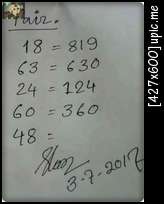 Pair.
18 = 819
63 = 630
24 = 124
60 = 360
48 =
3-7-2017
[427x600]upic.me